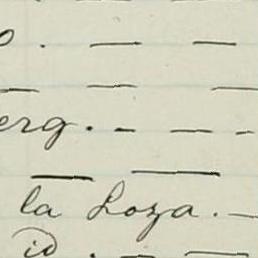 o . — —
— — —
erg. - — -
— —
la Loza. —
id . — —